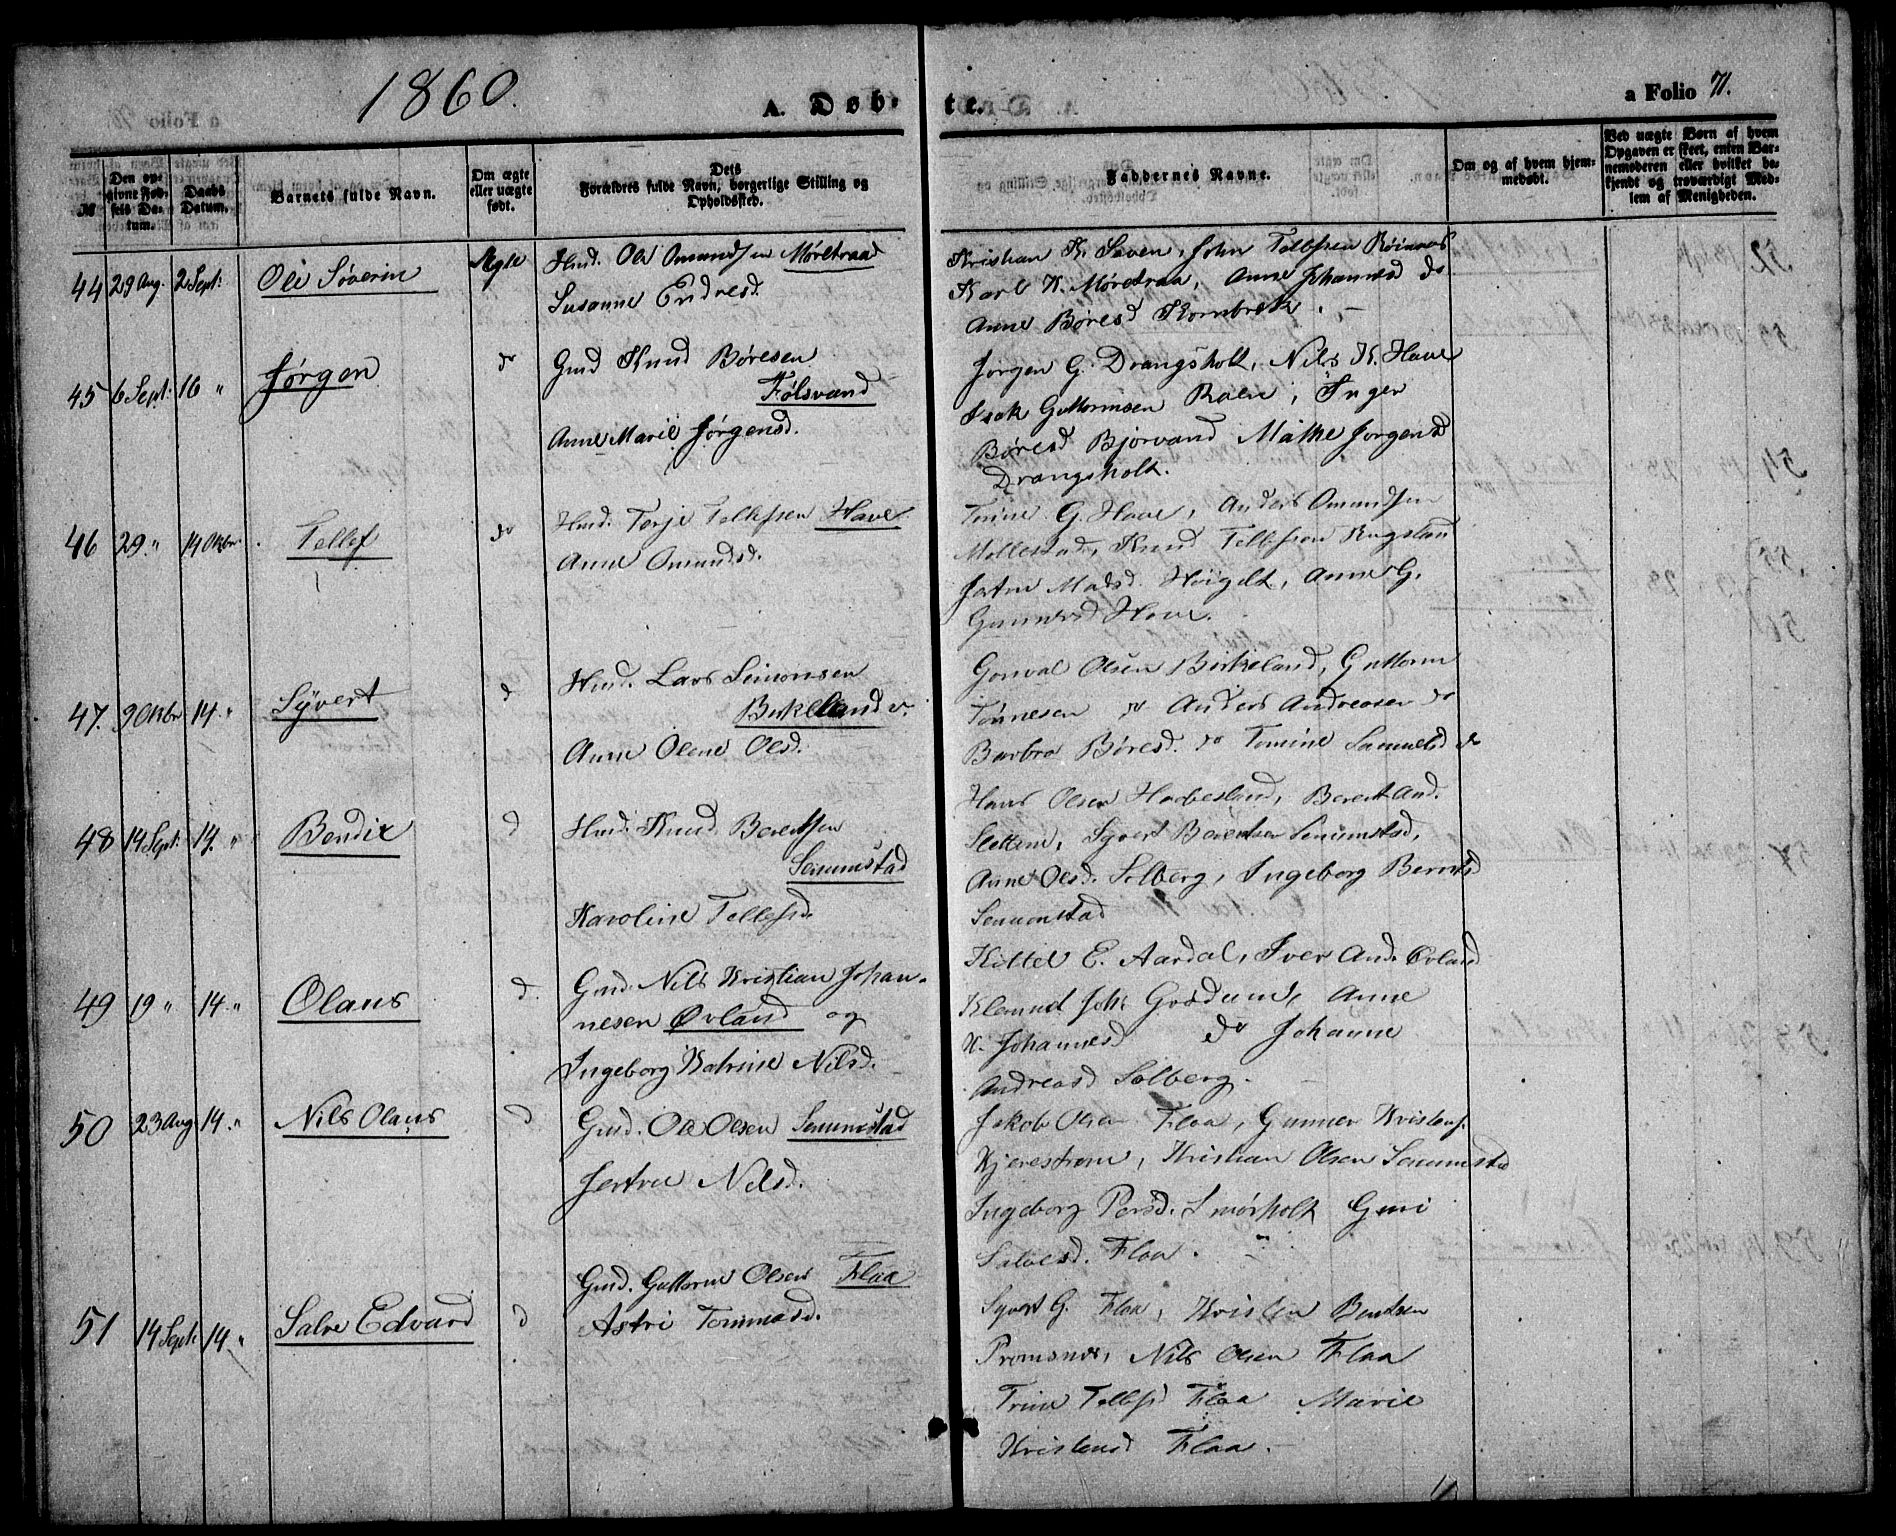 1860.
A. Døbte.
a Folio 71.
№
Den opgivne Fødsels Datum.
Daabs Datum.
Barnets fulde Navn.
Om ægte eller uægte født.
Dets Forældres fulde Navn, borgerlige Stilling og Opholdssted.
Faddernes Navne.
Om og af hvem hjemmedøbt.
Ved uægte Børn af hvem Opgaven er skeet, enten Barnemoderen eller hvilket bekjendt og troværdigt Medlem af Menigheden.
44 29 Aug. 2 Sept: Ole Søverin Ægte Hmd. Ole Omundsen Møretraa
Susanne Endresd.
Kristian K. Saven, John Tellefsen
Karl K. Møretraa, Anne Johannesd do
Anne Børesd Kornbrek. –
45 6 Sept: 16 " Jørgen do Gmd Knud Børesen
Følsvand
Anne Marie Jørgensd.
Jørgen G. Drangsholt, Nils K. Have
Isak Guttormsen Roen, Inger
Børesd Bjorvand Mathe Jørgensd
Drangsholt.
46 29 " 14 Oktbr. Tellef do Hmd. Terje Tellefsen Have
Anne Omundsd.
Tonne G. Have, Anders Omundsen
Mollestad, Knud Tellefsen Rugsland
Jertru Madsd. Høigelt, Anne G.
Gunnersd Have.
47. 9 Oktbr 14 " Syvert d Hmd. Lars Simonsen
Birkeland
Anne Olene Olsd.
Gonval Olsen Birkeland, Guttorm
Tønnesen do Anders Andreasen do
Barbro Børesd. do Tomine Samuelsd do
48 14 Sept: 14. " Bendix d Hmd. Knud Berentsen
Senumstad
Karoline Tellefsd.
Hans Olsen Hobbesland, Berent And.
Slettene, Syvert Berentsen Senumstad,
Anne Olsd. Solberg, Ingeborg Berentsd
Senumstad
49 19 " 14. " Olaus d. Gmd. Nils Kristian Johan-
nesen Øvland og
Ingeborg Katrine Nilsd.
Kittel E. Aardal, Iver And. Øvland
Klemet Joh. Grosdum, Anne
K. Johannesd do Johanne
Andreasd Solberg.
50 23 Aug 14. " Nils Olaus d Gmd. Ole Olsen Senumstad
Jertru Nilsd.
Jakob Olsen Flaa, Gunner Kristens.
Kjerestrøm, Kristian Olsen Senumstad
Ingeborg Persd. Smørholt Guri
Salvesd. Flaa.
51 14 Sept: 14 " Salve Edvard d Gmd. Guttorm Olsen Flaa
Astri Tommasd.
Syvert G. Flaa, Kristen Bentsen
Promsnes, Nils Olsen Flaa
Trine Tellefsd Flaa Marie
Kristensd Flaa. –